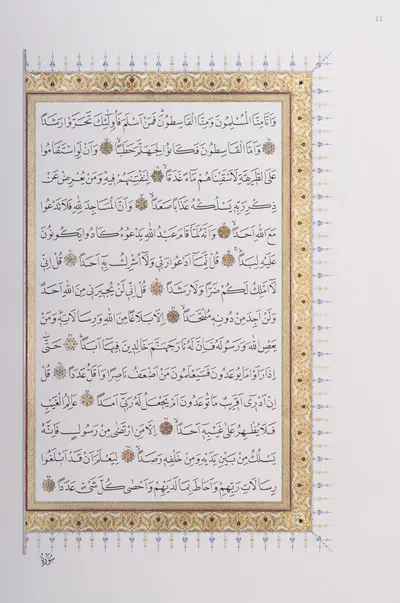 ٤٤
وَاَنَّا مِنَّا الْمُسْلِمُونَ وَمِنَّا الْقَاسِطُونَ فَمَنْ اَسْلَمَ فَاُولٰٓئِكَ تَحَرَّوْا رَشَدًا
وَاَمَّا الْقَاسِطُونَ فَكَانُوا لِجَهَنَّمَ حَطَبًا وَاَنْ لَوِ اسْتَقَامُوا
عَلَى الطَّرِيقَةِ لَاَسْقَيْنَاهُمْ مَٓاءً غَدَقًا لِنَفْتِنَهُمْ فِيهِ وَمَنْ يُعْرِضْ عَنْ
ذِكْرِ رَبِّهِ يَسْلُكْهُ عَذَابًا صَعَدًا وَاَنَّ الْمَسَاجِدَ لِلّٰهِ فَلَا تَدْعُوا
مَعَ اللّٰهِ اَحَدًا وَاَنَّهُ لَمَّا قَامَ عَبْدُ اللّٰهِ يَدْعُوهُ كَادُوا يَكُونُونَ
عَلَيْهِ لِبَدًا قُلْ اِنَّمَٓا اَدْعُوا رَبِّي وَلَٓا اُشْرِكُ بِهِ اَحَدًا قُلْ اِنِّي
لَٓا اَمْلِكُ لَكُمْ ضَرًّا وَلَا رَشَدًا قُلْ اِنِّي لَنْ يُجِيرَنِي مِنَ اللّٰهِ اَحَدٌ
وَلَنْ اَجِدَ مِنْ دُونِهِ مُلْتَحَدًا اِلَّا بَلَاغًا مِنَ اللّٰهِ وَرِسَالَاتِهِ وَمَنْ
يَعْصِ اللّٰهَ وَرَسُولَهُ فَاِنَّ لَهُ نَارَ جَهَنَّمَ خَالِدِينَ فِيهَٓا اَبَدًا حَتّٰٓى
اِذَا رَاَوْا مَا يُوعَدُونَ فَسَيَعْلَمُونَ مَنْ اَضْعَفُ نَاصِرًا وَاَقَلُّ عَدَدًا قُلْ
اِنْ اَدْرِي اَقَرِيبٌ مَا تُوعَدُونَ اَمْ يَجْعَلُ لَهُ رَبِّي اَمَدًا عَالِمُ الْغَيْبِ
فَلَا يُظْهِرُ عَلٰى غَيْبِهِ اَحَدًا اِلَّا مَنِ ارْتَضٰى مِنْ رَسُولٍ فَاِنَّهُ
يَسْلُكُ مِنْ بَيْنِ يَدَيْهِ وَمِنْ خَلْفِهِ رَصَدًا لِيَعْلَمَ اَنْ قَدْ اَبْلَغُوا
رِسَالَاتِ رَبِّهِمْ وَاَحَاطَ بِمَا لَدَيْهِمْ وَاَحْصٰى كُلَّ شَيْءٍ عَدَدًا
سُورَةُ